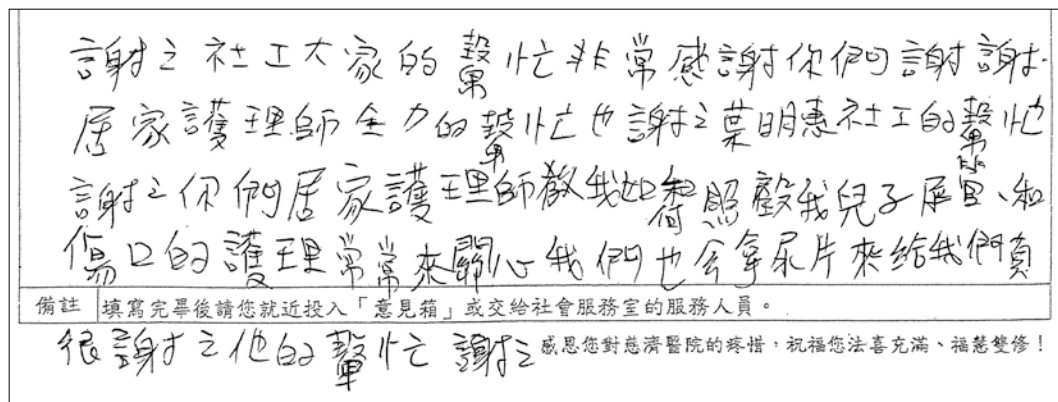 謝之社工大家的幫忙非常感謝你們謝謝
居家護理師全力的幫忙也謝之葉明惠社工的幫忙
謝之你們居家護理師教我如何照殸我兒子屎管、和
傷口的護理常常來關心我們也会拿尿片來給我們真
備註 填寫完畢後請您就近投入「意見箱」或交給社會服務室的服務人員。
很謝之他的幫忙 謝之 感恩您對慈濟醫院的疼惜,祝福您法喜充滿、福慧雙修!